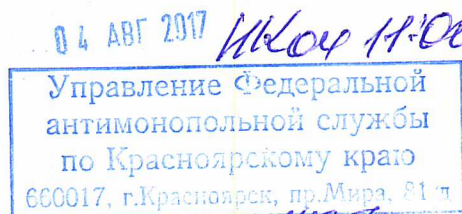 04 АВГ 2017 11:0
Управление Федеральной
антимонопольной службы
по Красноярскому краю
660017, г.Красноярск, пр.Мира, 81 д